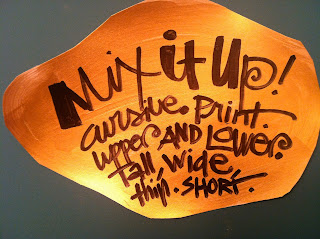 Mix it up!
cursive. Print
upper AND Lower.
Tall wide,
thin. SHORT.